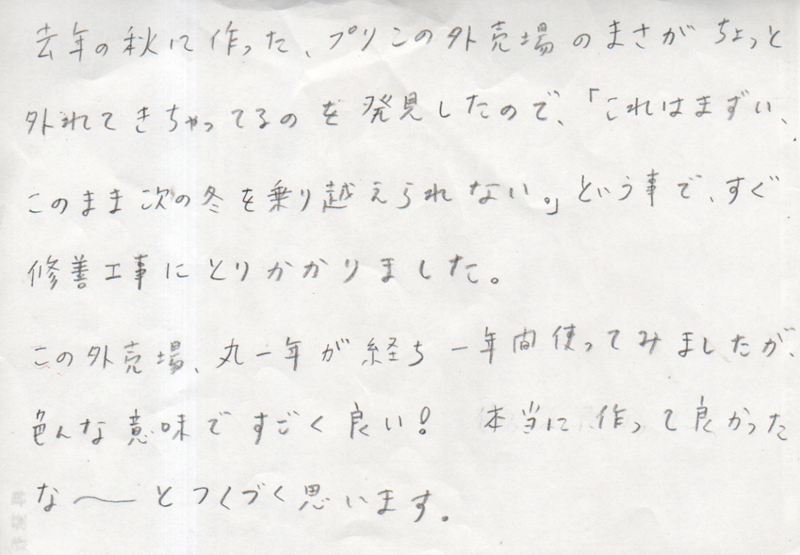 去年の秋に作った、プリンの外売場のまさがちょっと
外れてきちゃってるのを発見したので、「これはまずい、
このまま次の冬を乗り越えられない。」という事で、すぐ
修善工事にとりかかりました。
この外売場、丸一年が経ち一年間使ってみましたが、
色んな意味ですごく良い! 本当に作って良かった
な〜とつくづく思います。